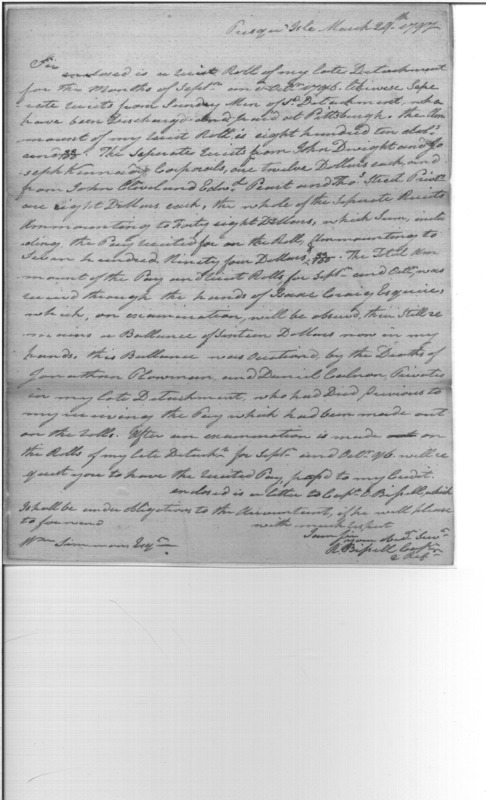 Presqu' Isle March 29th 1797
Sir
enclosed is a receit Roll of my late Detachment
for the Months of Septr and Octr 1796. likewise Sepe
rate receits from Sunday Men of sd Detachment, who
have been Discharged and paid at Pittsburgh. the Am
mount of my receit Roll is eight hundred ten dols
and The Seperate receits from John Dwight and Jo
seph Kinnard Corporals, are twelve Dollars each, and
from John Cleveland Edwd Peart and Thos Steel Privts
are eight Dollars each, the whole of the Seperate Receits
Ammounting to Forty eight Dollars, which Sum, inclu
ding the Pay receited for on the Rolls, Ammounting to
Seven hundred Ninety four Dollars The Total Am
mount of the Pay and receit Rolls for Septr and Octr, was
receivd through the hands of Isaac Craig Esquire,
which, on examination, will be obsevd, their Still re
mains a Ballance of Sixteen Dollars now in my
hands. this Ballance was ocationd, by the Deaths of
Jonathan Plowman, and Daniel Cochran, Privates
in my late Detachment, who had Died previous to
my receiving the Pay which had been made out
on the rolls. After an examination is made on
the Rolls of my late Detacht for Septr and Octr 96. will re
quest you to have the receited Pay, passd to my Credit.
enclosed is a letter to Capt Bissell, which
I shall be under obligations to the Accountant, if he will please
to forward
with much respect
I am Sir
your Obt Servt
R Bissell Capt
Wm Simmons Esqr